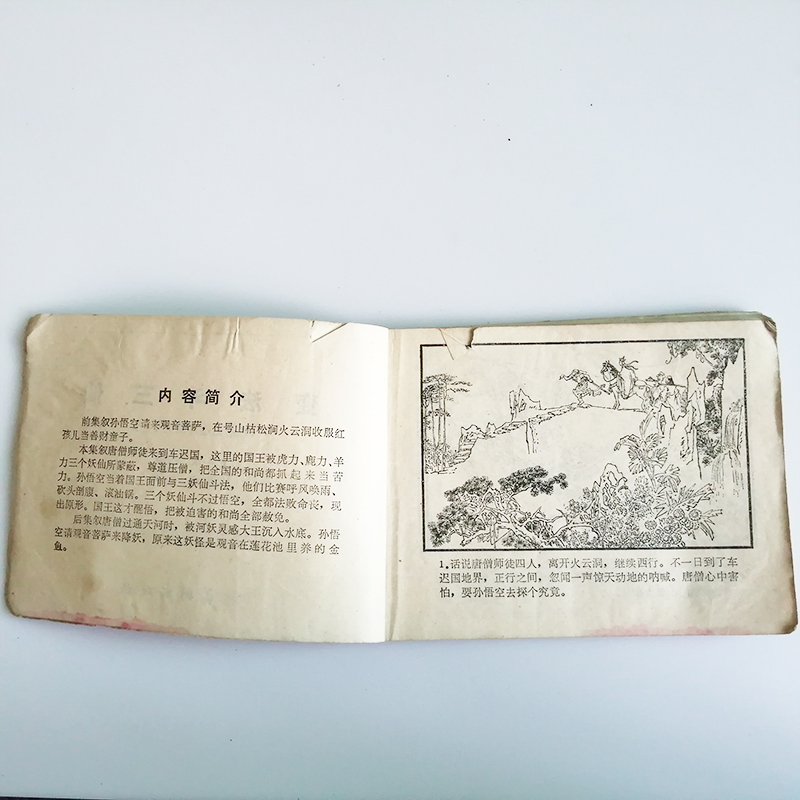 内容简介
前集叙孙悟空请来观音菩萨，在号山枯松涧火云洞收服红
孩儿当善财童子。
本集叙唐僧师徒来到车迟国，这里的国王被虎力、鹿力、羊
力三个妖仙所蒙蔽，尊道压僧，把全国的和尚都抓起来当苦
力。孙悟空当着国王面前与三妖仙斗法，他们比赛呼风唤雨、
砍头剖腹、滚油锅。三个妖仙斗不过悟空，全都法败命丧，现
出原形。国王这才醒悟，把被迫害的和尚全部赦免。
后集叙唐僧过通天河时，被河妖灵感大王沉入水底。孙悟
空请观音菩萨来降妖，原来这妖怪是观音在莲花池里养的金
鱼。
1.话说唐僧师徒四人，离开火云洞，继续西行。不一日到了车
迟国地界，正行之间，忽闻一声惊天动地的呐喊。唐僧心中害
怕，要孙悟空去探个究竟。